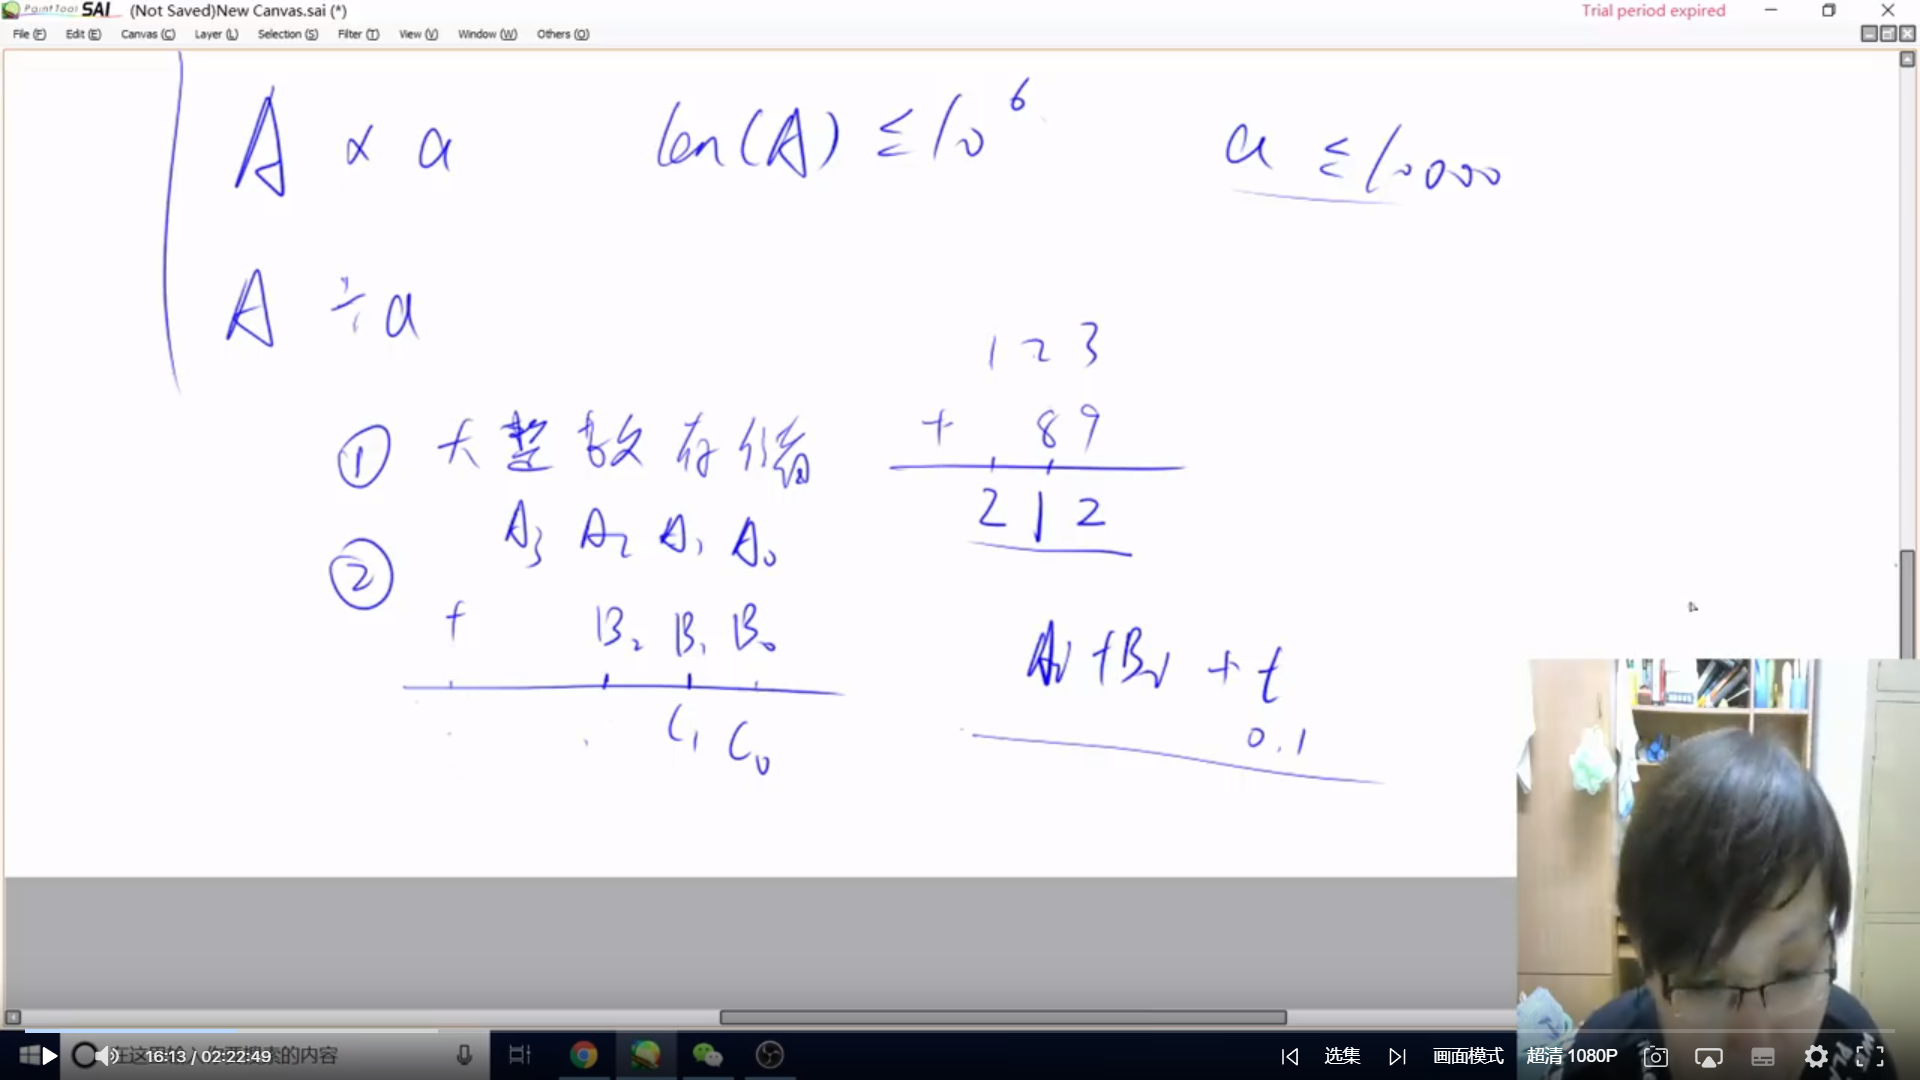 PaintTool SAI (Not Saved)New Canvas.sai (*) Trial period expired
File (F) Edit (E) Canvas (C) Layer (L) Selection (S) Filter (T) View (V) Window (W) Others (O)
A × a len(A) ≤ 10⁶ a ≤ 10000
A ÷ a
1 2 3
+ 8 9
2 1 2
① 大整数存储
② A₃ A₂ A₁ A₀
+ B₂ B₁ B₀
C₁ C₀
Ai + Bi + t
0.1
16:13 / 02:22:49
选集 画面模式 超清 1080P